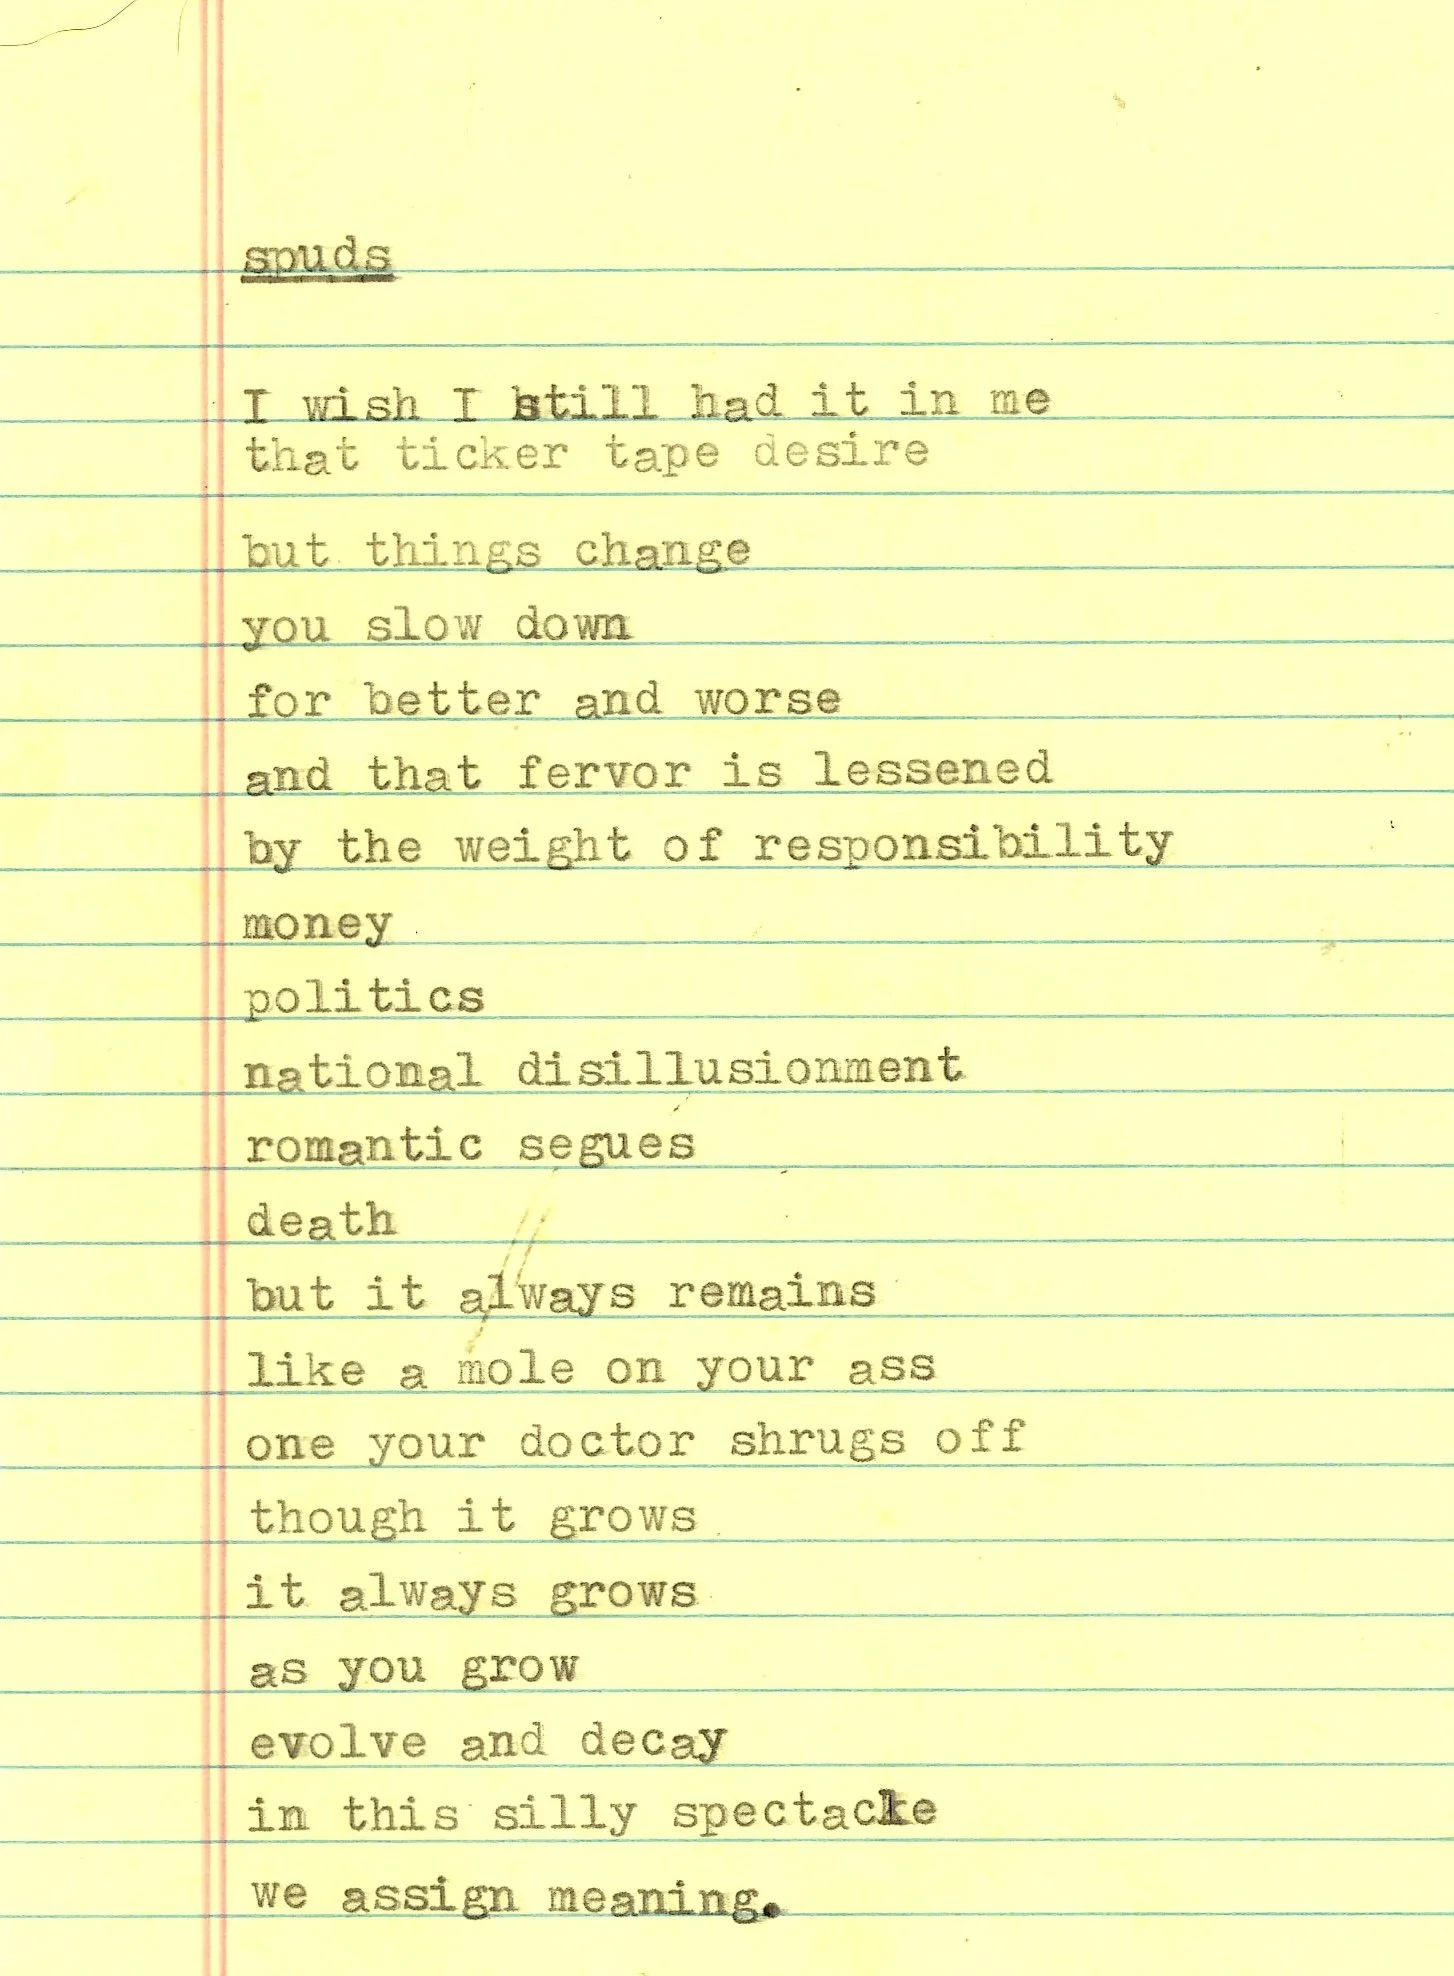 spuds
I wish I still had it in me
that ticker tape desire
but things change
you slow down
for better and worse
and that fervor is lessened
by the weight of responsibility
money
politics
national disillusionment
romantic segues
death
but it always remains
like a mole on your ass
one your doctor shrugs off
though it grows
it always grows
as you grow
evolve and decay
in this silly spectacle
we assign meaning.